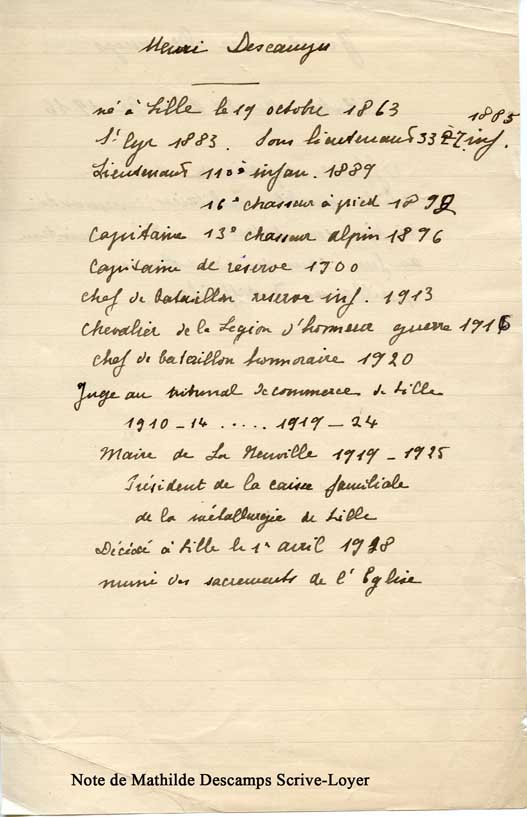 Henri Descamps
né à Lille le 19 octobre 1863
1885
St Cyr 1883. Sous lieutenant 33 inf.
Lieutenant 110e infan. 1889
16e chasseur à pied 1892
Capitaine 13e chasseur alpin 1896
Capitaine de réserve 1900
Chef de bataillon reserve inf. 1913
Chevalier de la Legion d'honneur guerre 1916
chef de bataillon honnoraire 1920
Juge au tribunal de commerce de Lille
1910-14 ..... 1919-24
Maire de La Neuville 1919-1925
Président de la caisse familiale
de la métallurgie de Lille
Décédé à Lille le 1r avril
muni des sacrements de l'Eglise
Note de Mathilde Descamps Scrive-Loyer